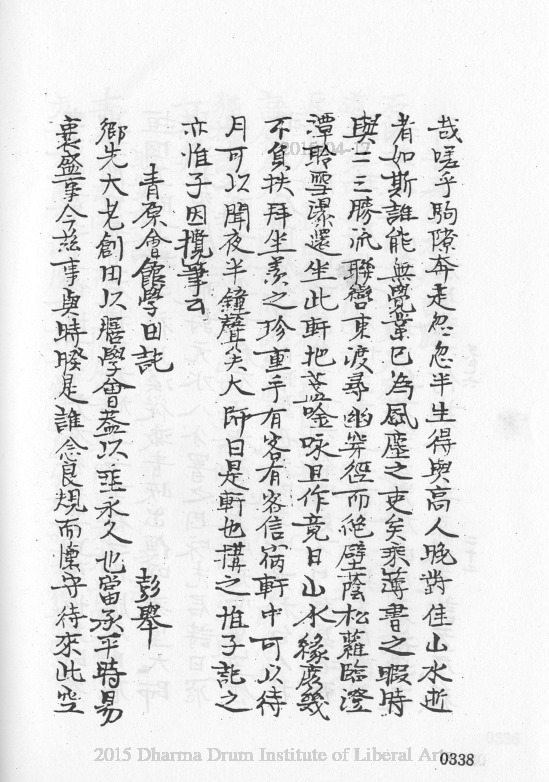 哉嗟乎駒隙奔走忽忽半生得與高人晚對佳山水逝
者如斯誰能無覺業已為風塵之吏矣乘薄書之暇時
與二三勝流聯轡東渡尋幽穿徑而絶壁蔭松蘿臨澄
潭聆雪瀑還坐此軒把盞唫咏且作竟日山水緣庶幾
不負扶拜坐羨之珍重乎有客有客信宿軒中可以待
月可以聞夜半鐘聲矣大師曰是軒也搆之惟子記之
亦惟子因攬筆云
青原會館學田記
彭舉
鄉先大老創田以膳學會葢以垂永久也當承平時易
襄盛事今茲事與時暌是誰念良規而懍守待來此空
2015 Dharma Drum Institute of Liberal Arts
0338